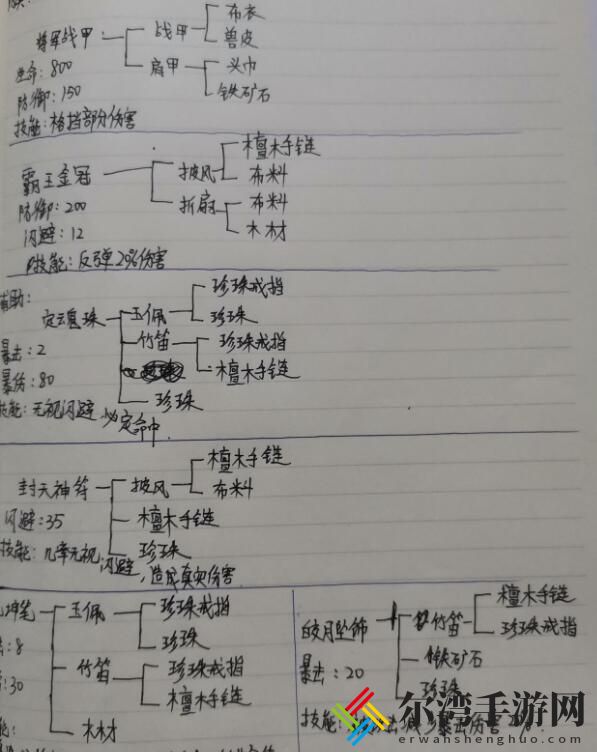 将军战甲 战甲 布衣
兽皮
肩甲 头巾
铁矿石
生命：800
防御：150
技能：格挡部分伤害
霸王金冠 披风 檀木手链
布料
折扇 布料
木材
防御：200
闪避：12
技能：反弹20%伤害
辅助：
定云魂珠 玉佩 珍珠戒指
珍珠
竹笛 珍珠戒指
檀木手链
珍珠
暴击：2
暴伤：80
技能：无视闪避 必定命中
封天神符 披风 檀木手链
布料
檀木手链
珍珠
闪避：35
技能：几率无视闪避，造成真实伤害
笔 玉佩 珍珠戒指
珍珠
竹笛 珍珠戒指
檀木手链
木材
：8
：30
皎月坠饰 竹笛 檀木手链
珍珠戒指
铁矿石
珍珠
暴击：20
技能： 减少暴击伤害
尔湾手游网
erwanshenghuo.com